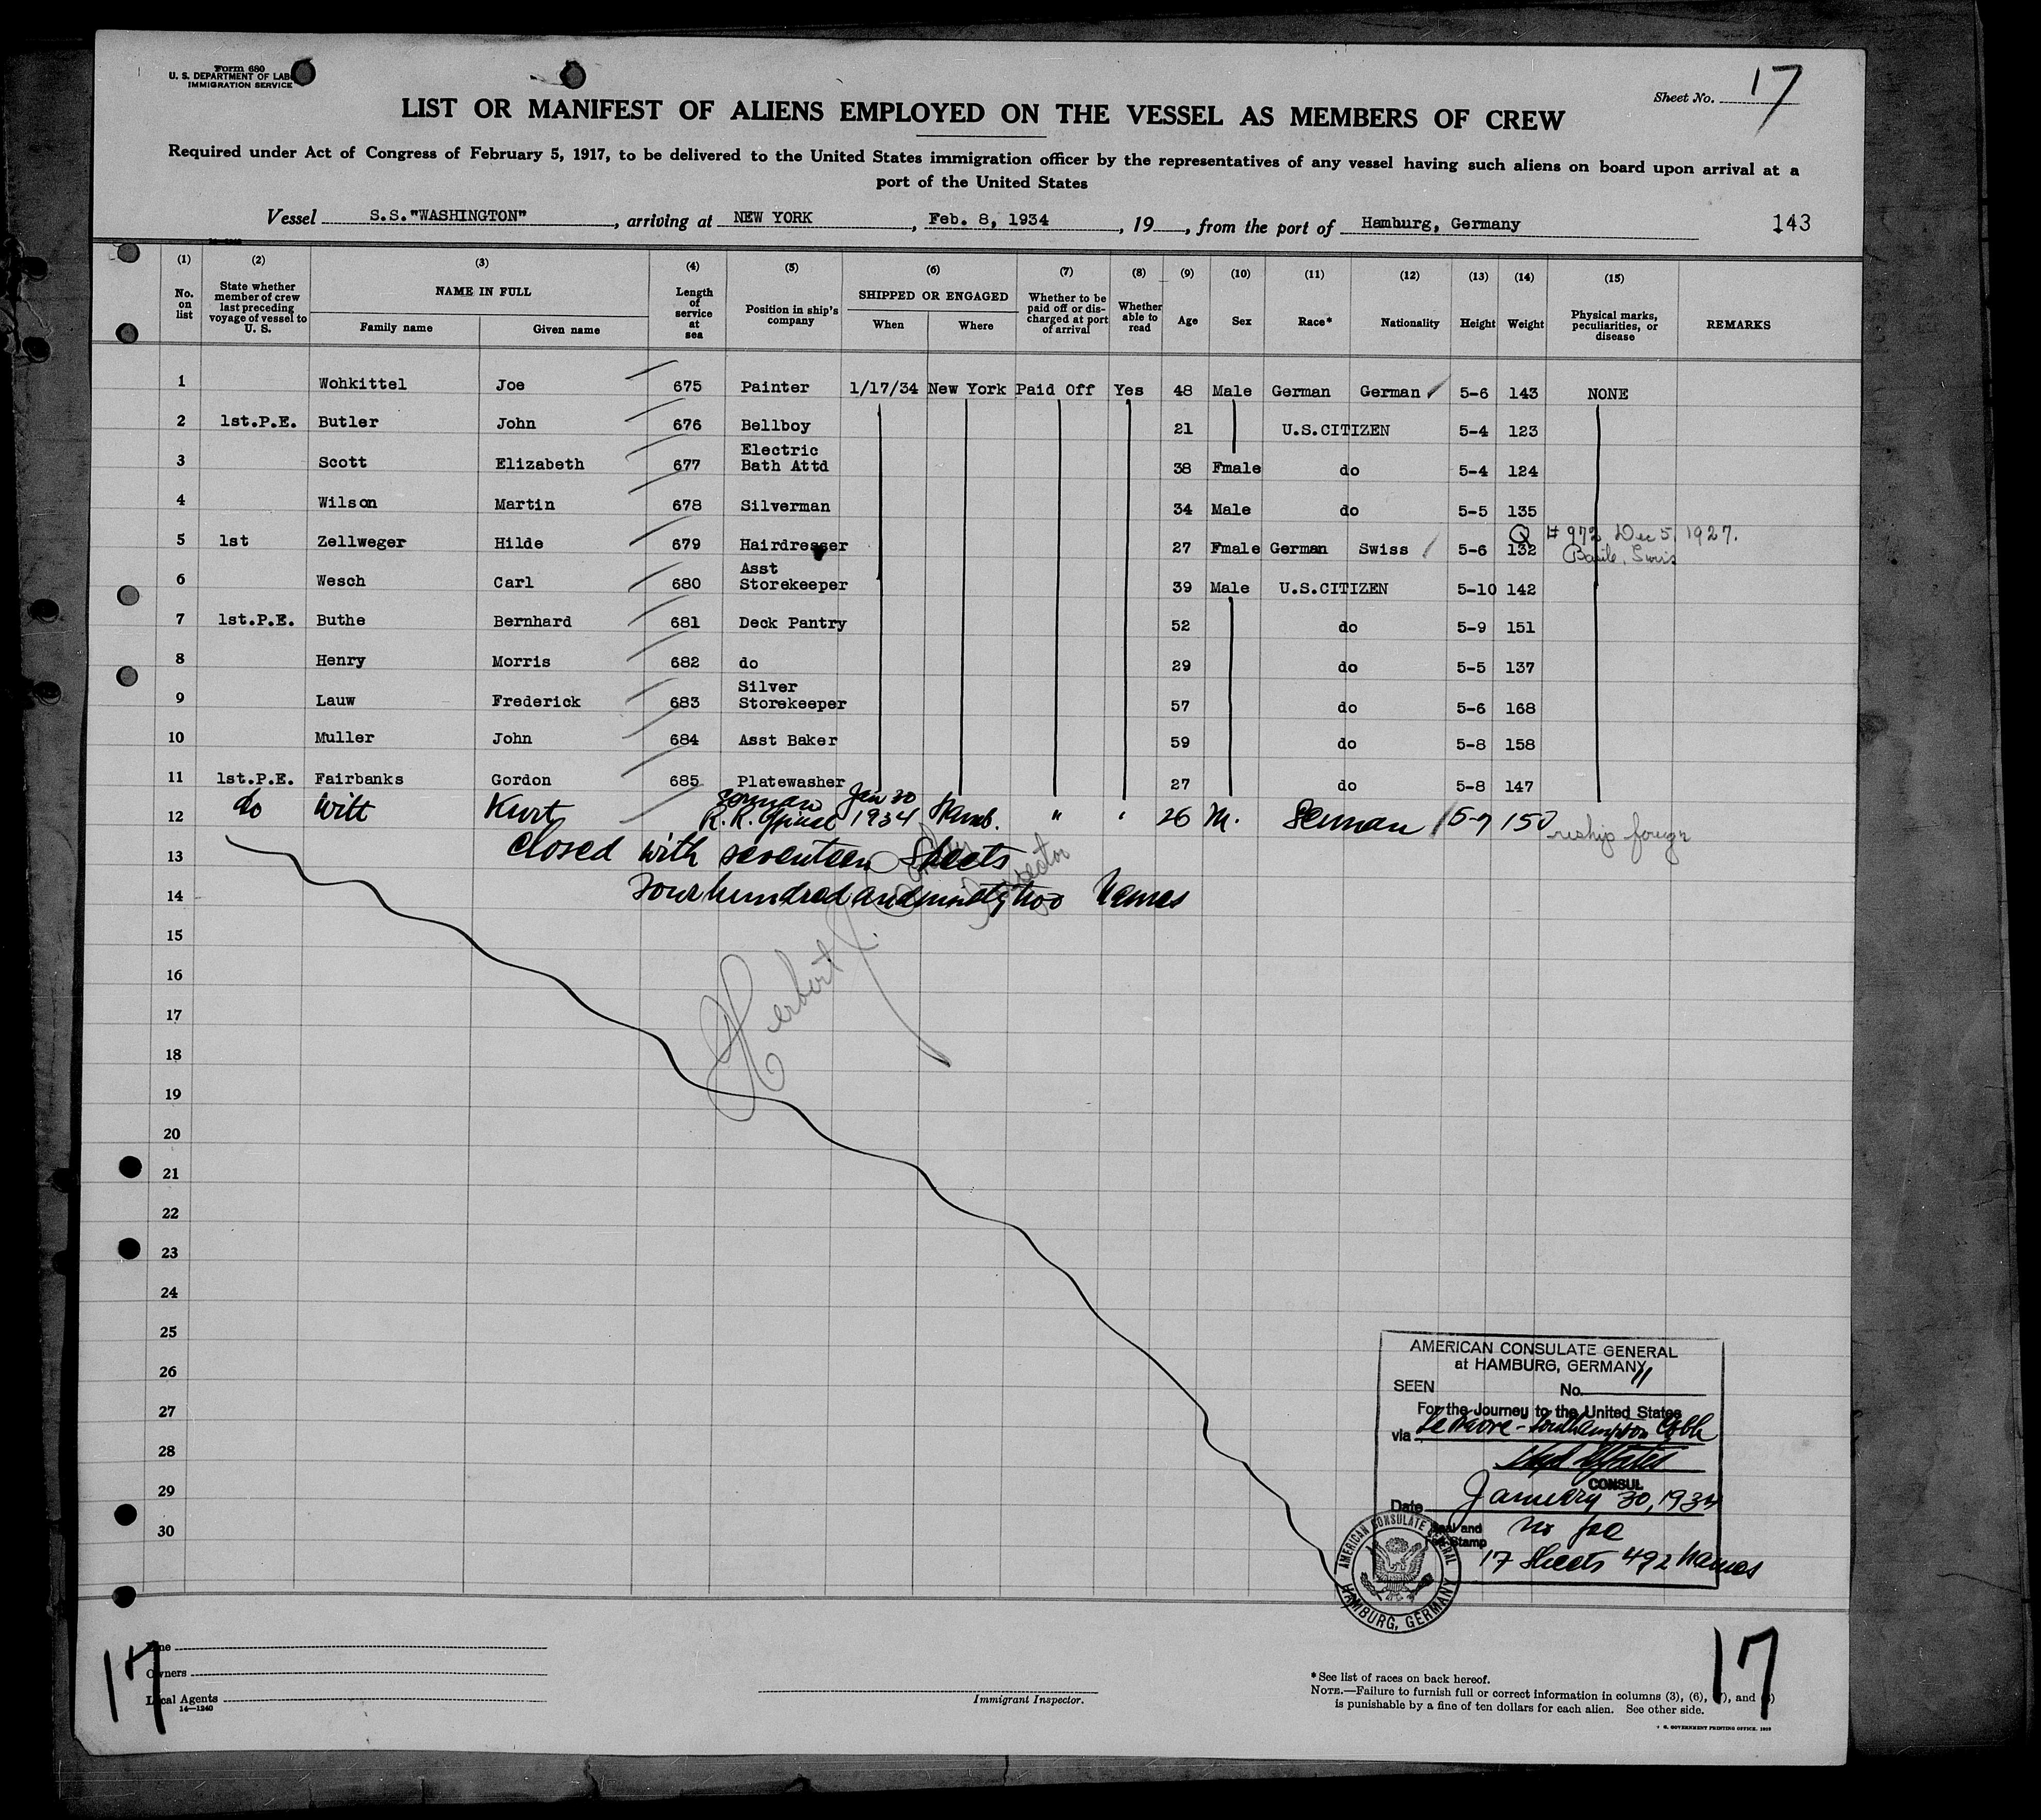 Form 680
U. S. DEPARTMENT OF LABO
IMMIGRATION SERVICE
Sheet No. 17
LIST OR MANIFEST OF ALIENS EMPLOYED ON THE VESSEL AS MEMBERS OF CREW
Required under Act of Congress of February 5, 1917, to be delivered to the United States immigration officer by the representatives of any vessel having such aliens on board upon arrival at a
port of the United States
Vessel S.S."WASHINGTON", arriving at NEW YORK, Feb. 8, 1934, 19, from the port of Hamburg, Germany 143
(1) No. on list
(2) State whether member of crew last preceding voyage of vessel to U. S.
(3) NAME IN FULL Family name Given name
(4) Length of service at sea
(5) Position in ship's company
(6) SHIPPED OR ENGAGED When Where
(7) Whether to be paid off or discharged at port of arrival
(8) Whether able to read
(9) Age
(10) Sex
(11) Race*
(12) Nationality
(13) Height
(14) Weight
(15) Physical marks, peculiarities, or disease
REMARKS
1 Wohkittel Joe 675 Painter 1/17/34 New York Paid Off Yes 48 Male German German 5-6 143 NONE
2 1st.P.E. Butler John 676 Bellboy 21 U.S.CITIZEN 5-4 123
3 Scott Elizabeth 677 Electric Bath Attd 38 Fmale do 5-4 124
4 Wilson Martin 678 Silverman 34 Male do 5-5 135
5 1st Zellweger Hilde 679 Hairdresser 27 Fmale German Swiss 5-6 132 Q # 972 Dec 5, 1927.
Basile, Swis
6 Wesch Carl 680 Asst Storekeeper 39 Male U.S.CITIZEN 5-10 142
7 1st.P.E. Buthe Bernhard 681 Deck Pantry 52 do 5-9 151
8 Henry Morris 682 do 29 do 5-5 137
9 Lauw Frederick 683 Silver Storekeeper 57 do 5-6 168
10 Muller John 684 Asst Baker 59 do 5-8 158
11 1st.P.E. Fairbanks Gordon 685 Platewasher 27 do 5-8 147
12 do Witt Kurt German R. R. Jan 30 1934 Hamb. " " 26 M. German 5-7 150 reship foreign
13 Closed with seventeen Sheets
14 Four hundred and ninety two Names
Herbert J.
Inspector
15
16
17
18
19
20
21
22
23
24
25
26
27
28
29
30
AMERICAN CONSULATE GENERAL
at HAMBURG, GERMANY
SEEN No. 11
For the Journey to the United States
via Le Havre - Southampton Cobh
CONSUL
Date January 30, 1934
Seal and
Fee Stamp
No fee
17 Sheets 492 Names
AMERICAN CONSULATE GENERAL
HAMBURG, GERMANY
17
Line
Owners
Local Agents
14—1240
Immigrant Inspector.
*See list of races on back hereof.
NOTE.—Failure to furnish full or correct information in columns (3), (6), ), and )
is punishable by a fine of ten dollars for each alien. See other side.
17
S. GOVERNMENT PRINTING OFFICE